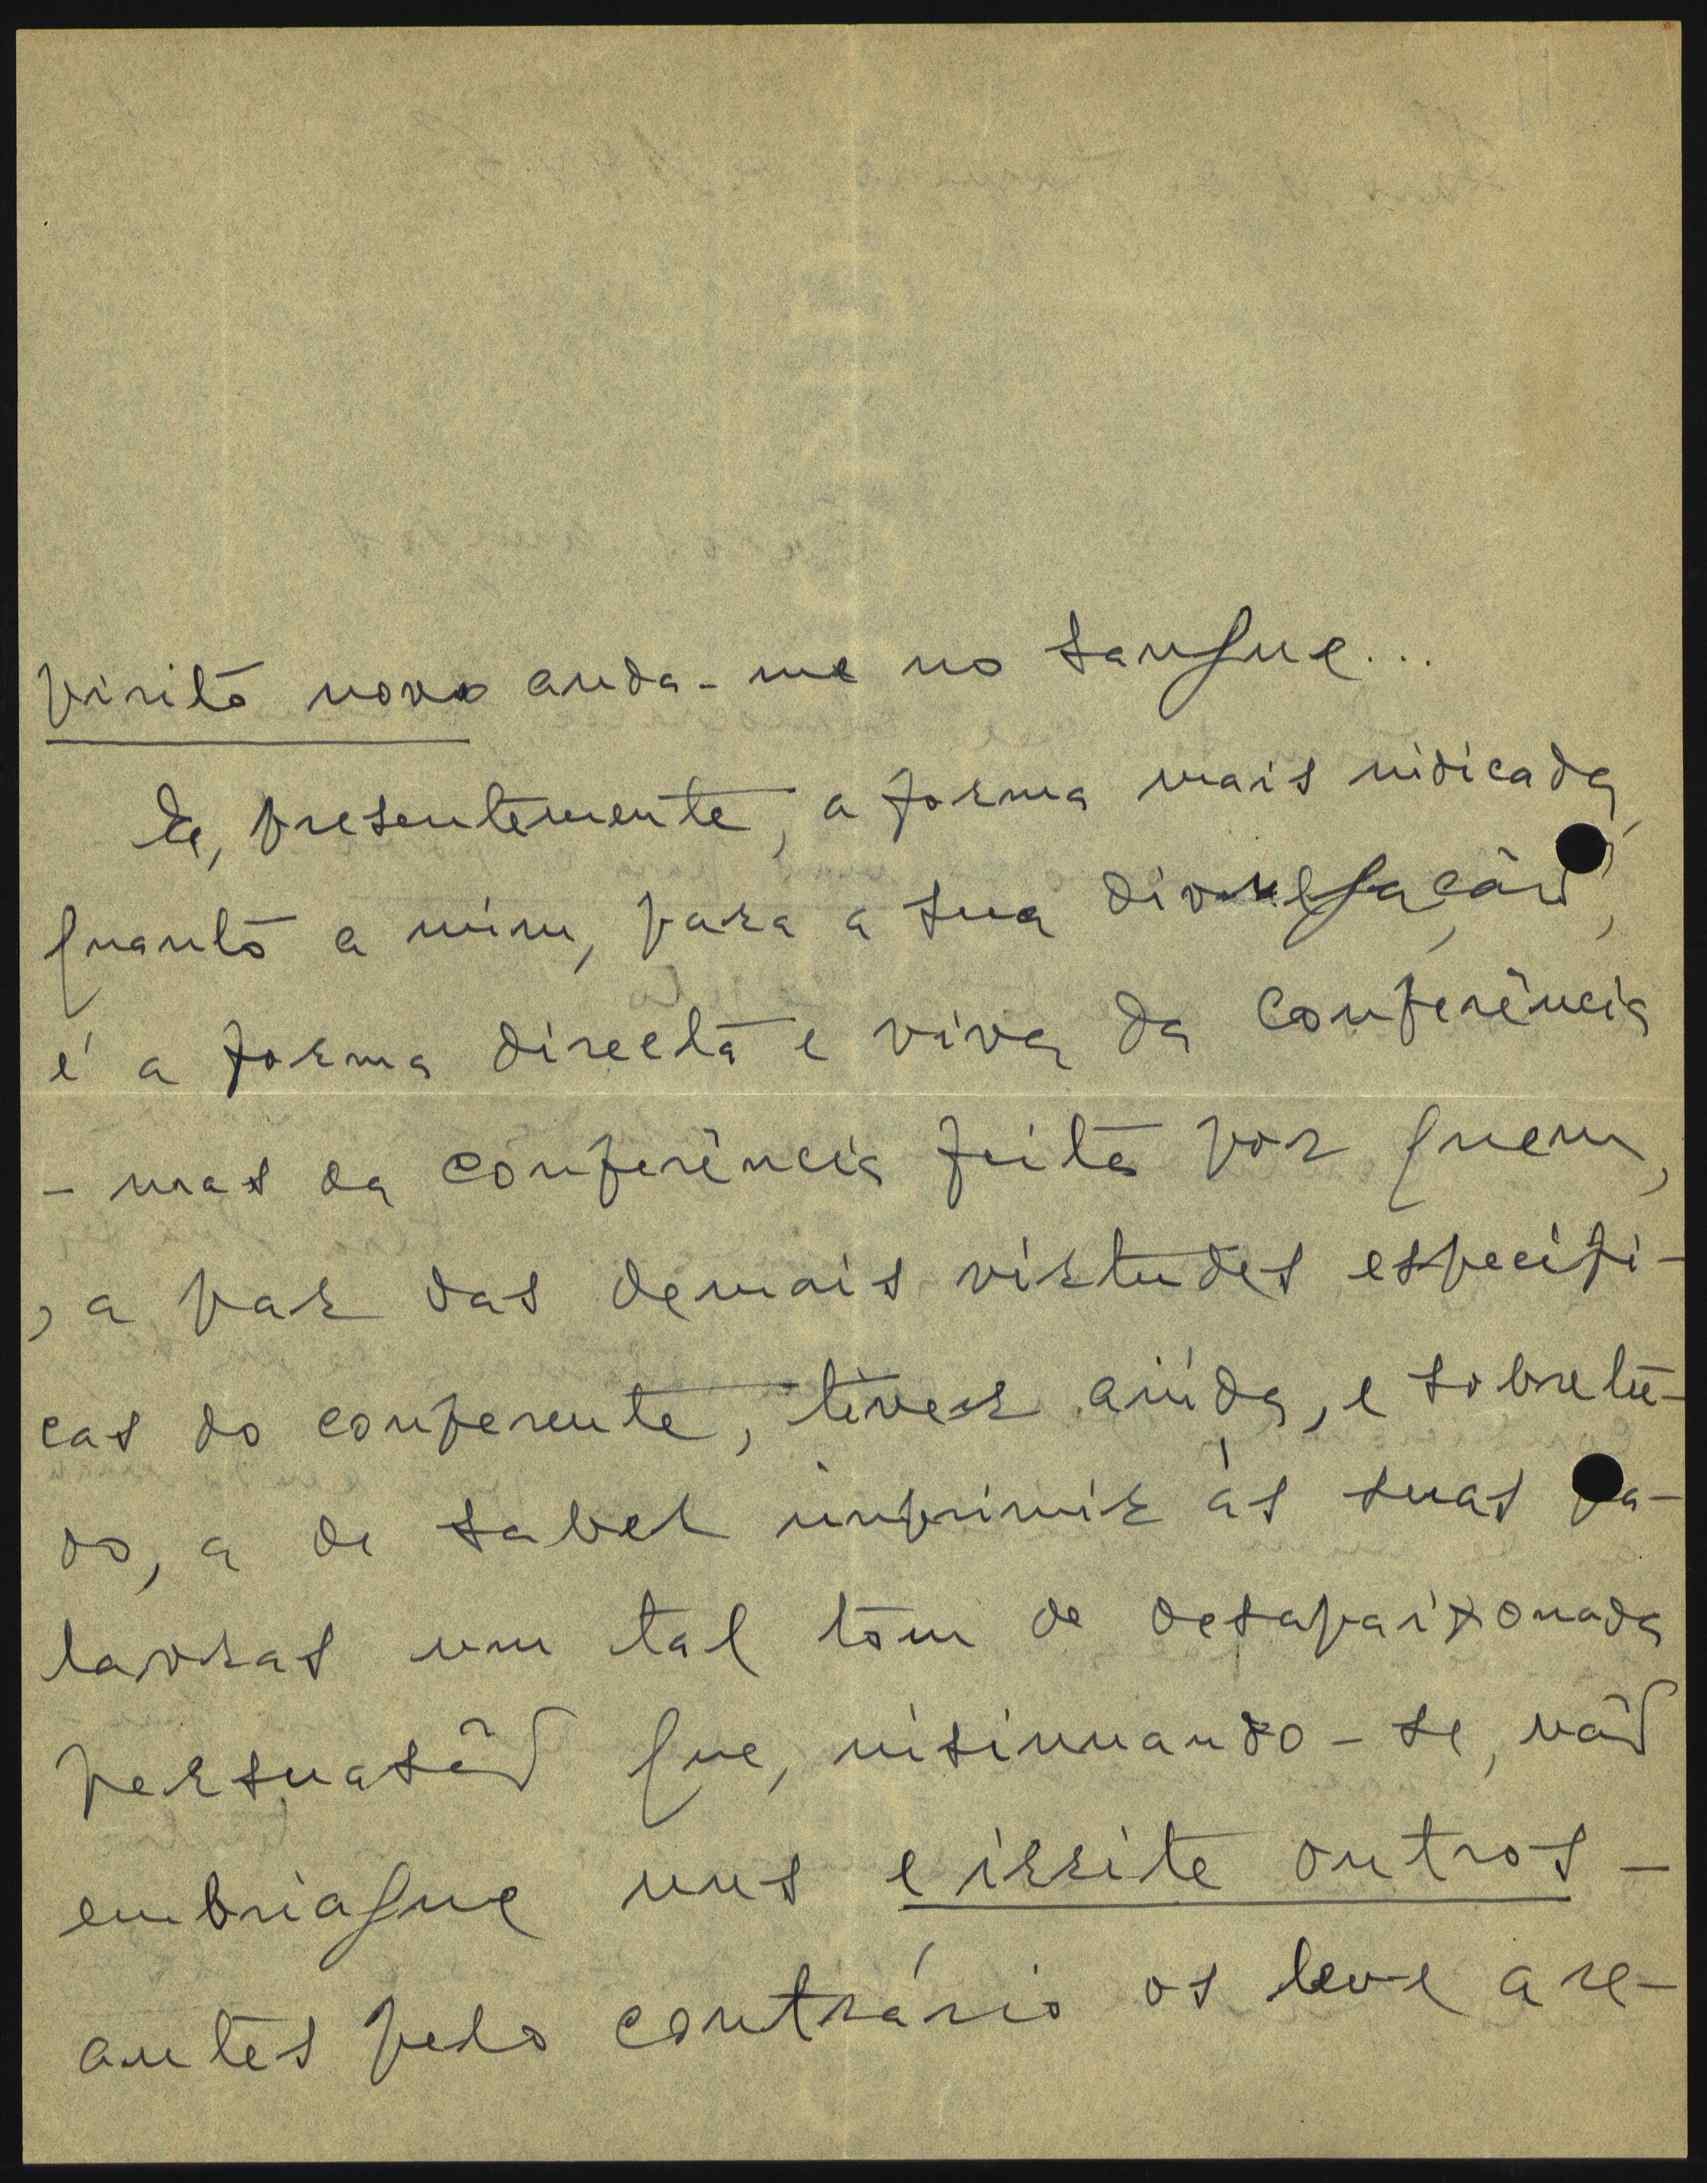 pírito novo anda-me no sangue...
E, presentemente, a forma mais indicada,
quanto a mim, para a sua divulgação,
é a forma directa e viva da Conferência
- mas da conferência feita por quem,
, a par das demais virtudes especifi-
cas do conferente, tiver ainda, e sobretu-
do, a de saber imprimir às suas pa-
lavras um tal tom de desapaixonada
persuasão que, insinuando-se, não
embriague uns e irrite outros -
antes pelo contrário os leve a re-